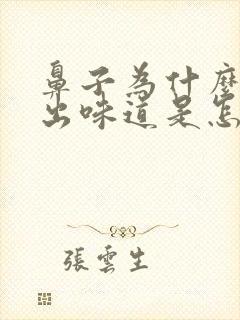 鼻子為什麼
出味道是怎
張雲生